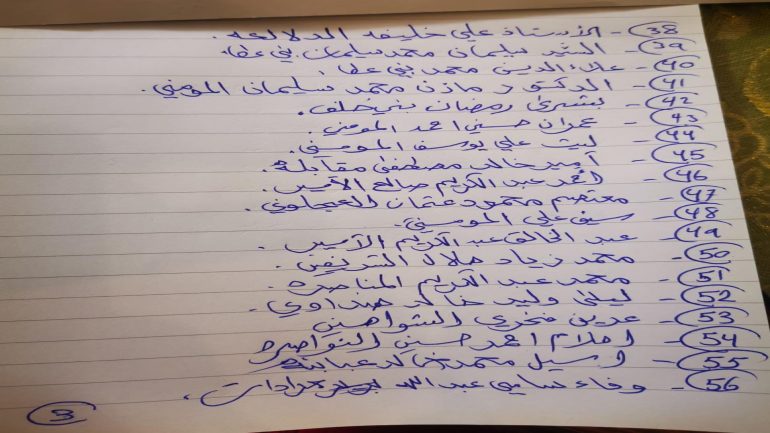 38- الأستاذ علي خليفه الدلالعه.
39- السيد سليمان محمد سليمان بني عطا.
40- علاء الدين محمد بني عطا.
41- الدكتور مازن محمد سليمان المومني.
42- بشرى رمضان بني خلف.
43- عمران حسني احمد المومني.
44- ليث علي يوسف المومني.
45- أمير خالد مصطفى مقابله
46- أحمد عبد الكريم صالح
47- معتصم محمود عثمان العجلوني.
48- سيف علي المومني.
49- عبد الخالق عبد الكريم
50- محمد زياد طلال الشريفين.
51- محمد عبد الكريم المناصره.
52- ليلى وليد خالد
53- عرين فخري الشواهين
54- احلام احمد حسين النواصره
55- اسيل محمد خالد عبابنه
56- وفاء سامي عبد الله جرادات.
3